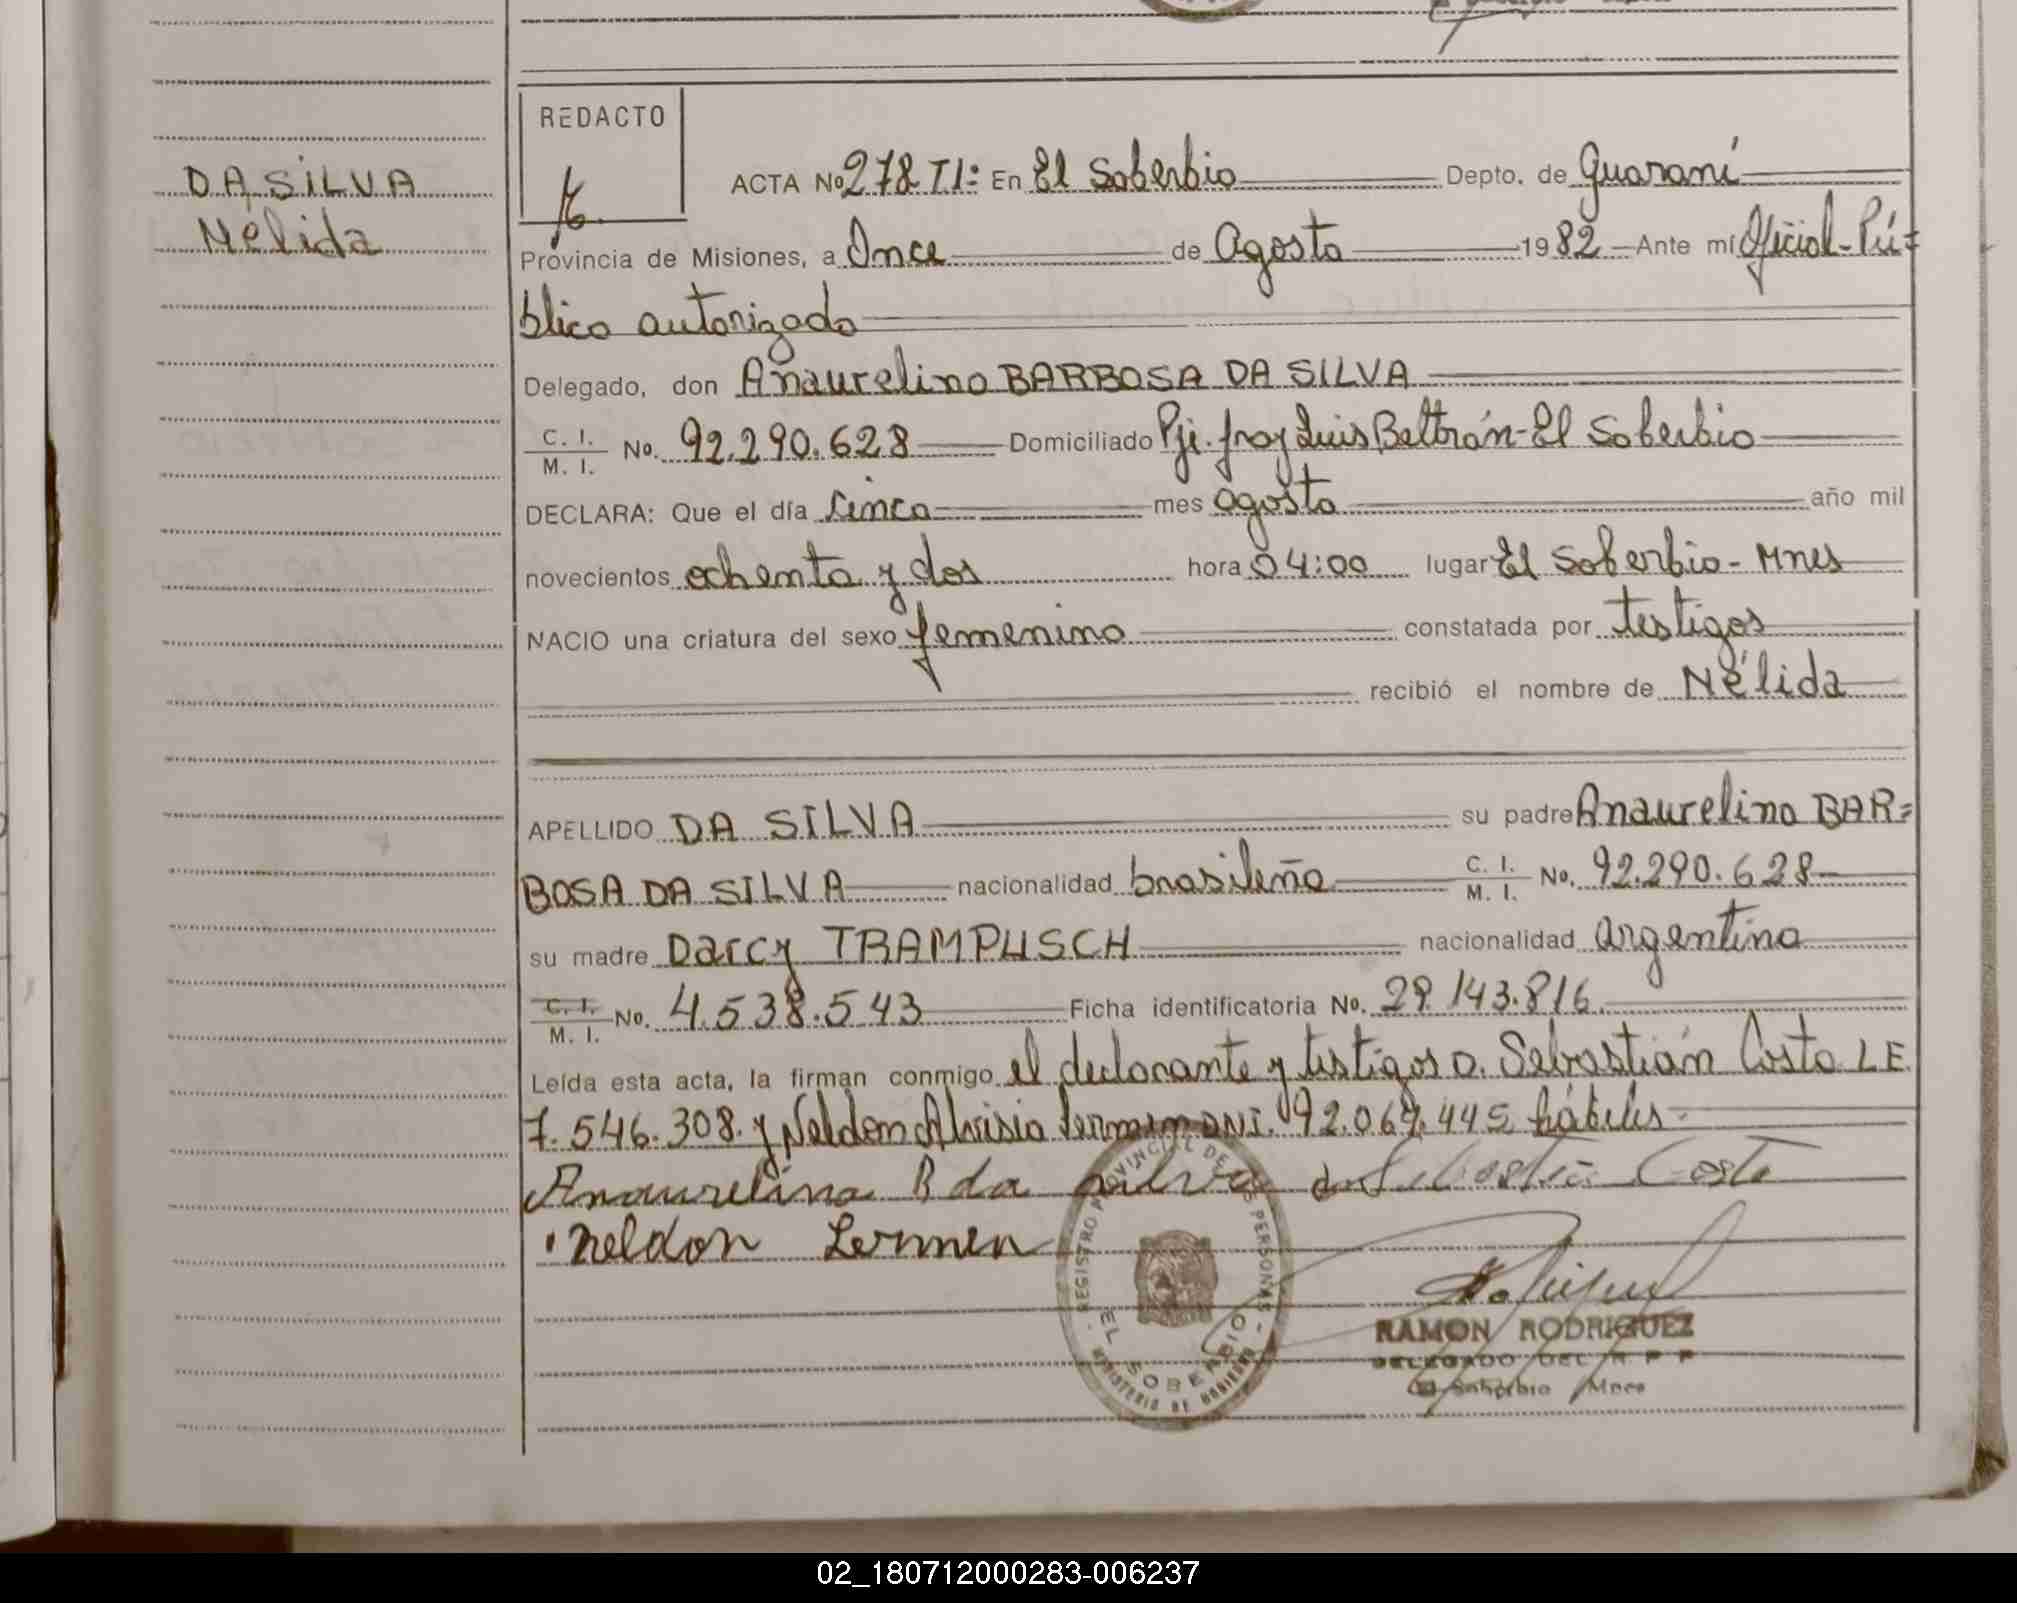 REDACTO
DA SILVA
Nélida
ACTA No 278 TI: En El Soberbio Depto. de Guaraní
Provincia de Misiones, a Once de Agosto 1982 Ante mí Oficial Pú=
blico autorizado
Delegado, don Anaurelino BARBOSA DA SILVA
C. I. M. I. No. 92.290.628 Domiciliado Pje. fray Luis Beltrán - El Soberbio
DECLARA: Que el día cinco mes agosto año mil
novecientos ochenta y dos hora 04:00 lugar El Soberbio - Mnes
NACIO una criatura del sexo femenino constatada por testigos
recibió el nombre de Nélida
APELLIDO DA SILVA su padre Anaurelino BAR=
BOSA DA SILVA nacionalidad brasileña C. I. M. I. No. 92.290.628
su madre Darcy TRAMPUSCH nacionalidad argentina
C. I. M. I. No. 4.538.543 Ficha identificatoria No. 29.143.816
Leída esta acta, la firman conmigo el declarante y testigos D. Sebastián Costa LE
7.546.308. y Neldon Lermen DNI. 92.067.445 hábiles
Anaurelino B da silva Sebastia Costa
neldon Lermen
REGISTRO PROVINCIAL DE LAS PERSONAS
EL SOBERBIO
MINISTERIO DE GOBIERNO
RAMON RODRIGUEZ
DELEGADO DEL R P P
El Soberbio Mnes
02_180712000283-006237